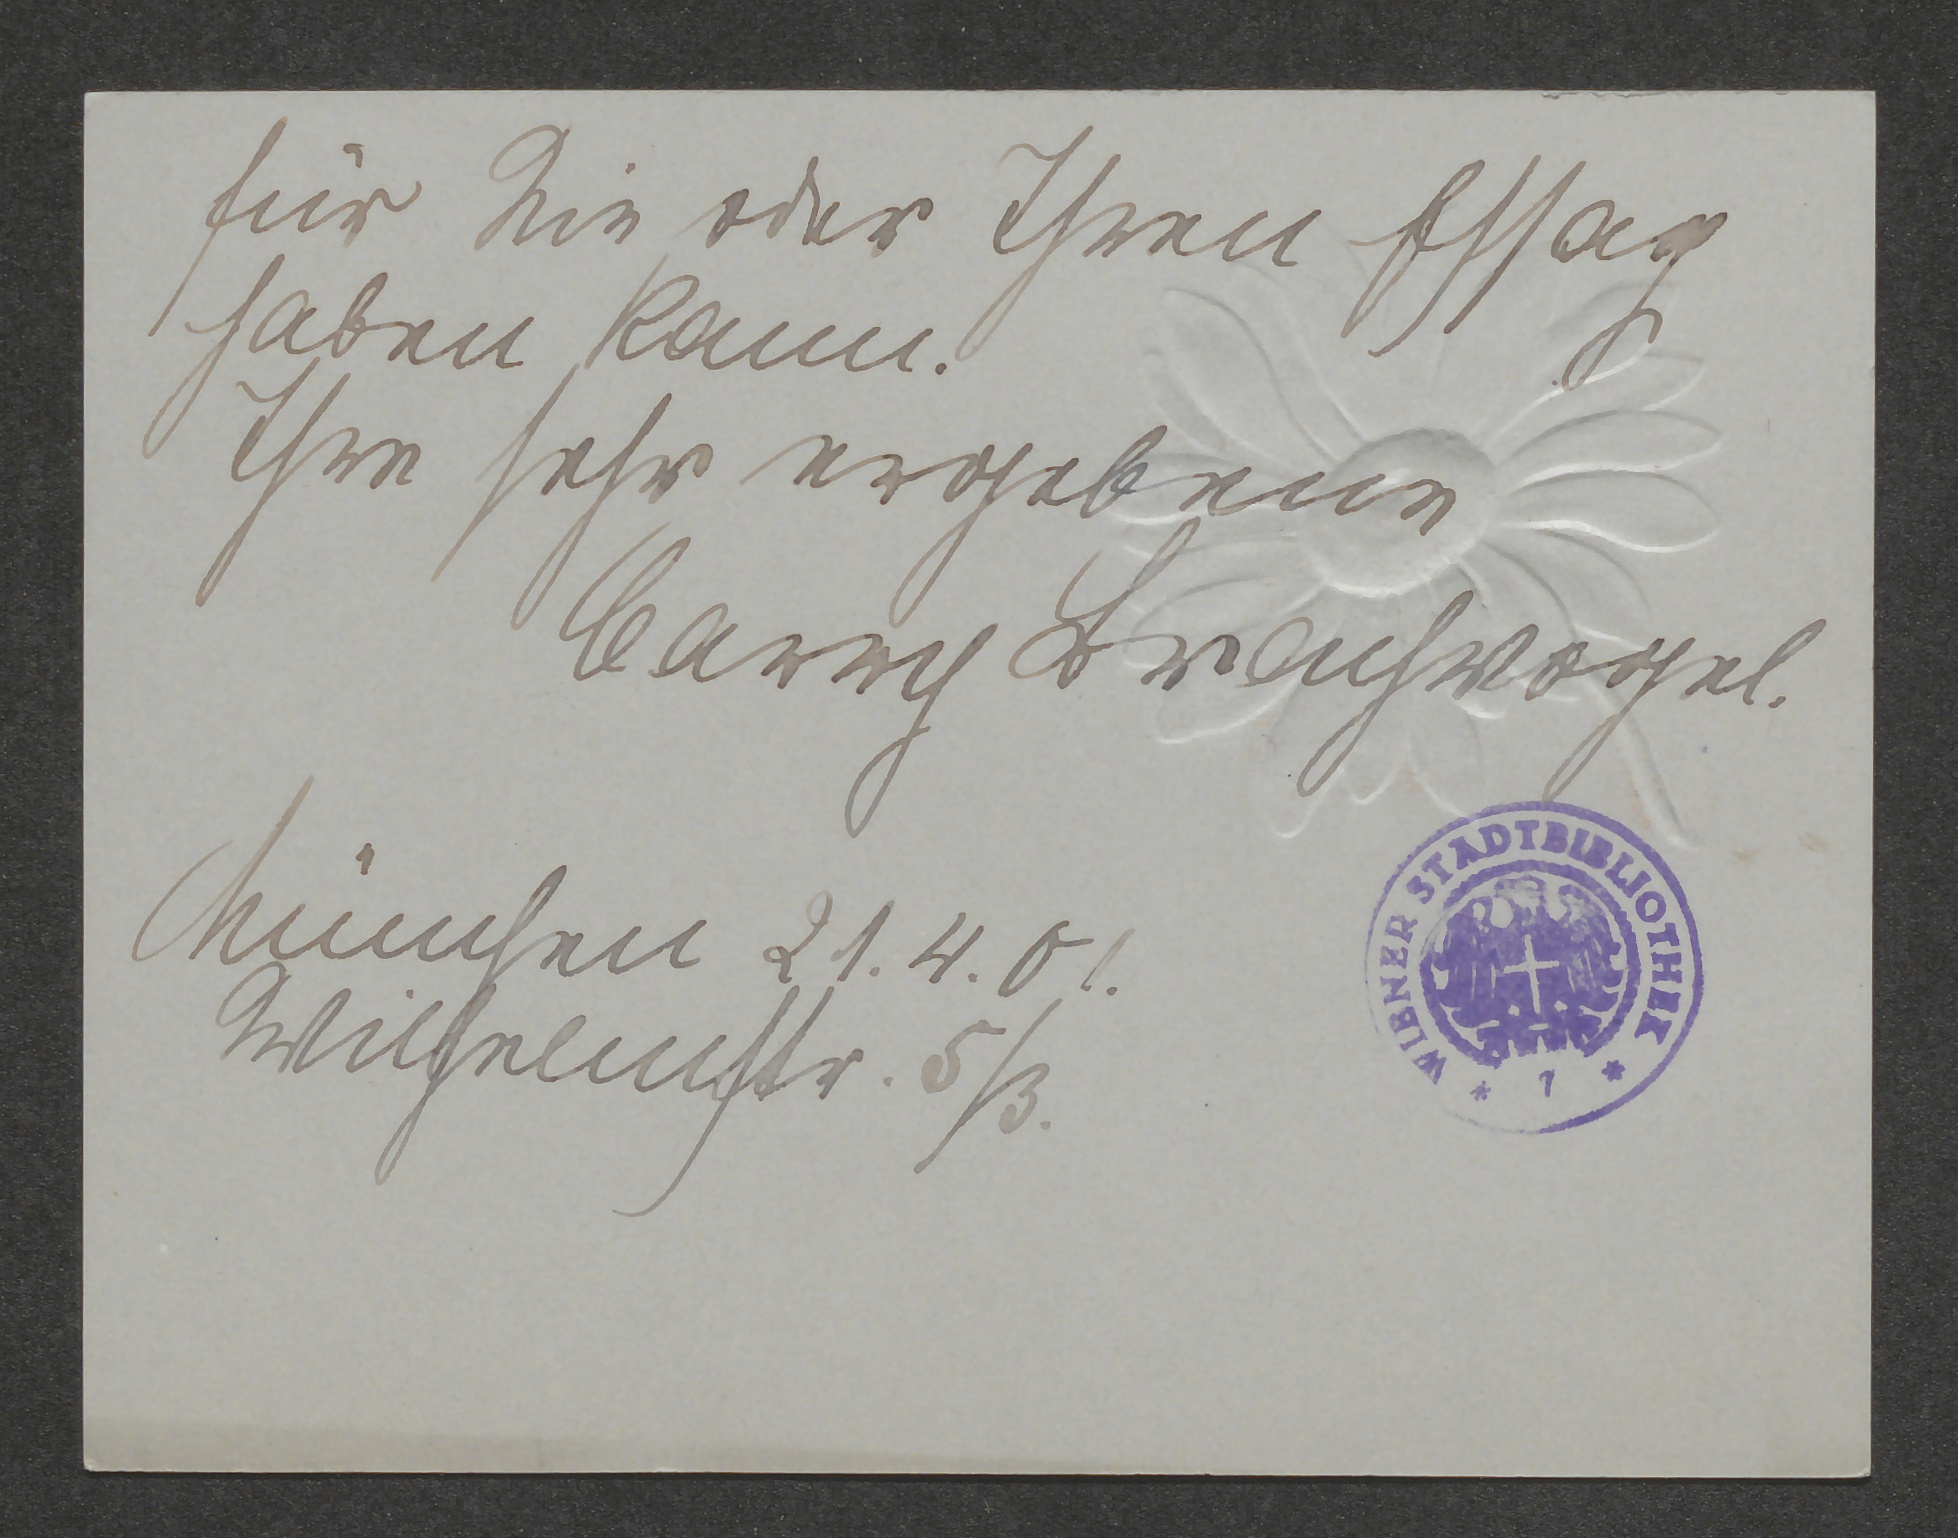 für Sie oder Ihren Essay
haben kann.
Ihre sehr ergebene
Carry Brachvogel.
München 21.4.01.
Wilhelmstr. 5/3.
WIENER STADTBIBLIOTHEK
* 1 *